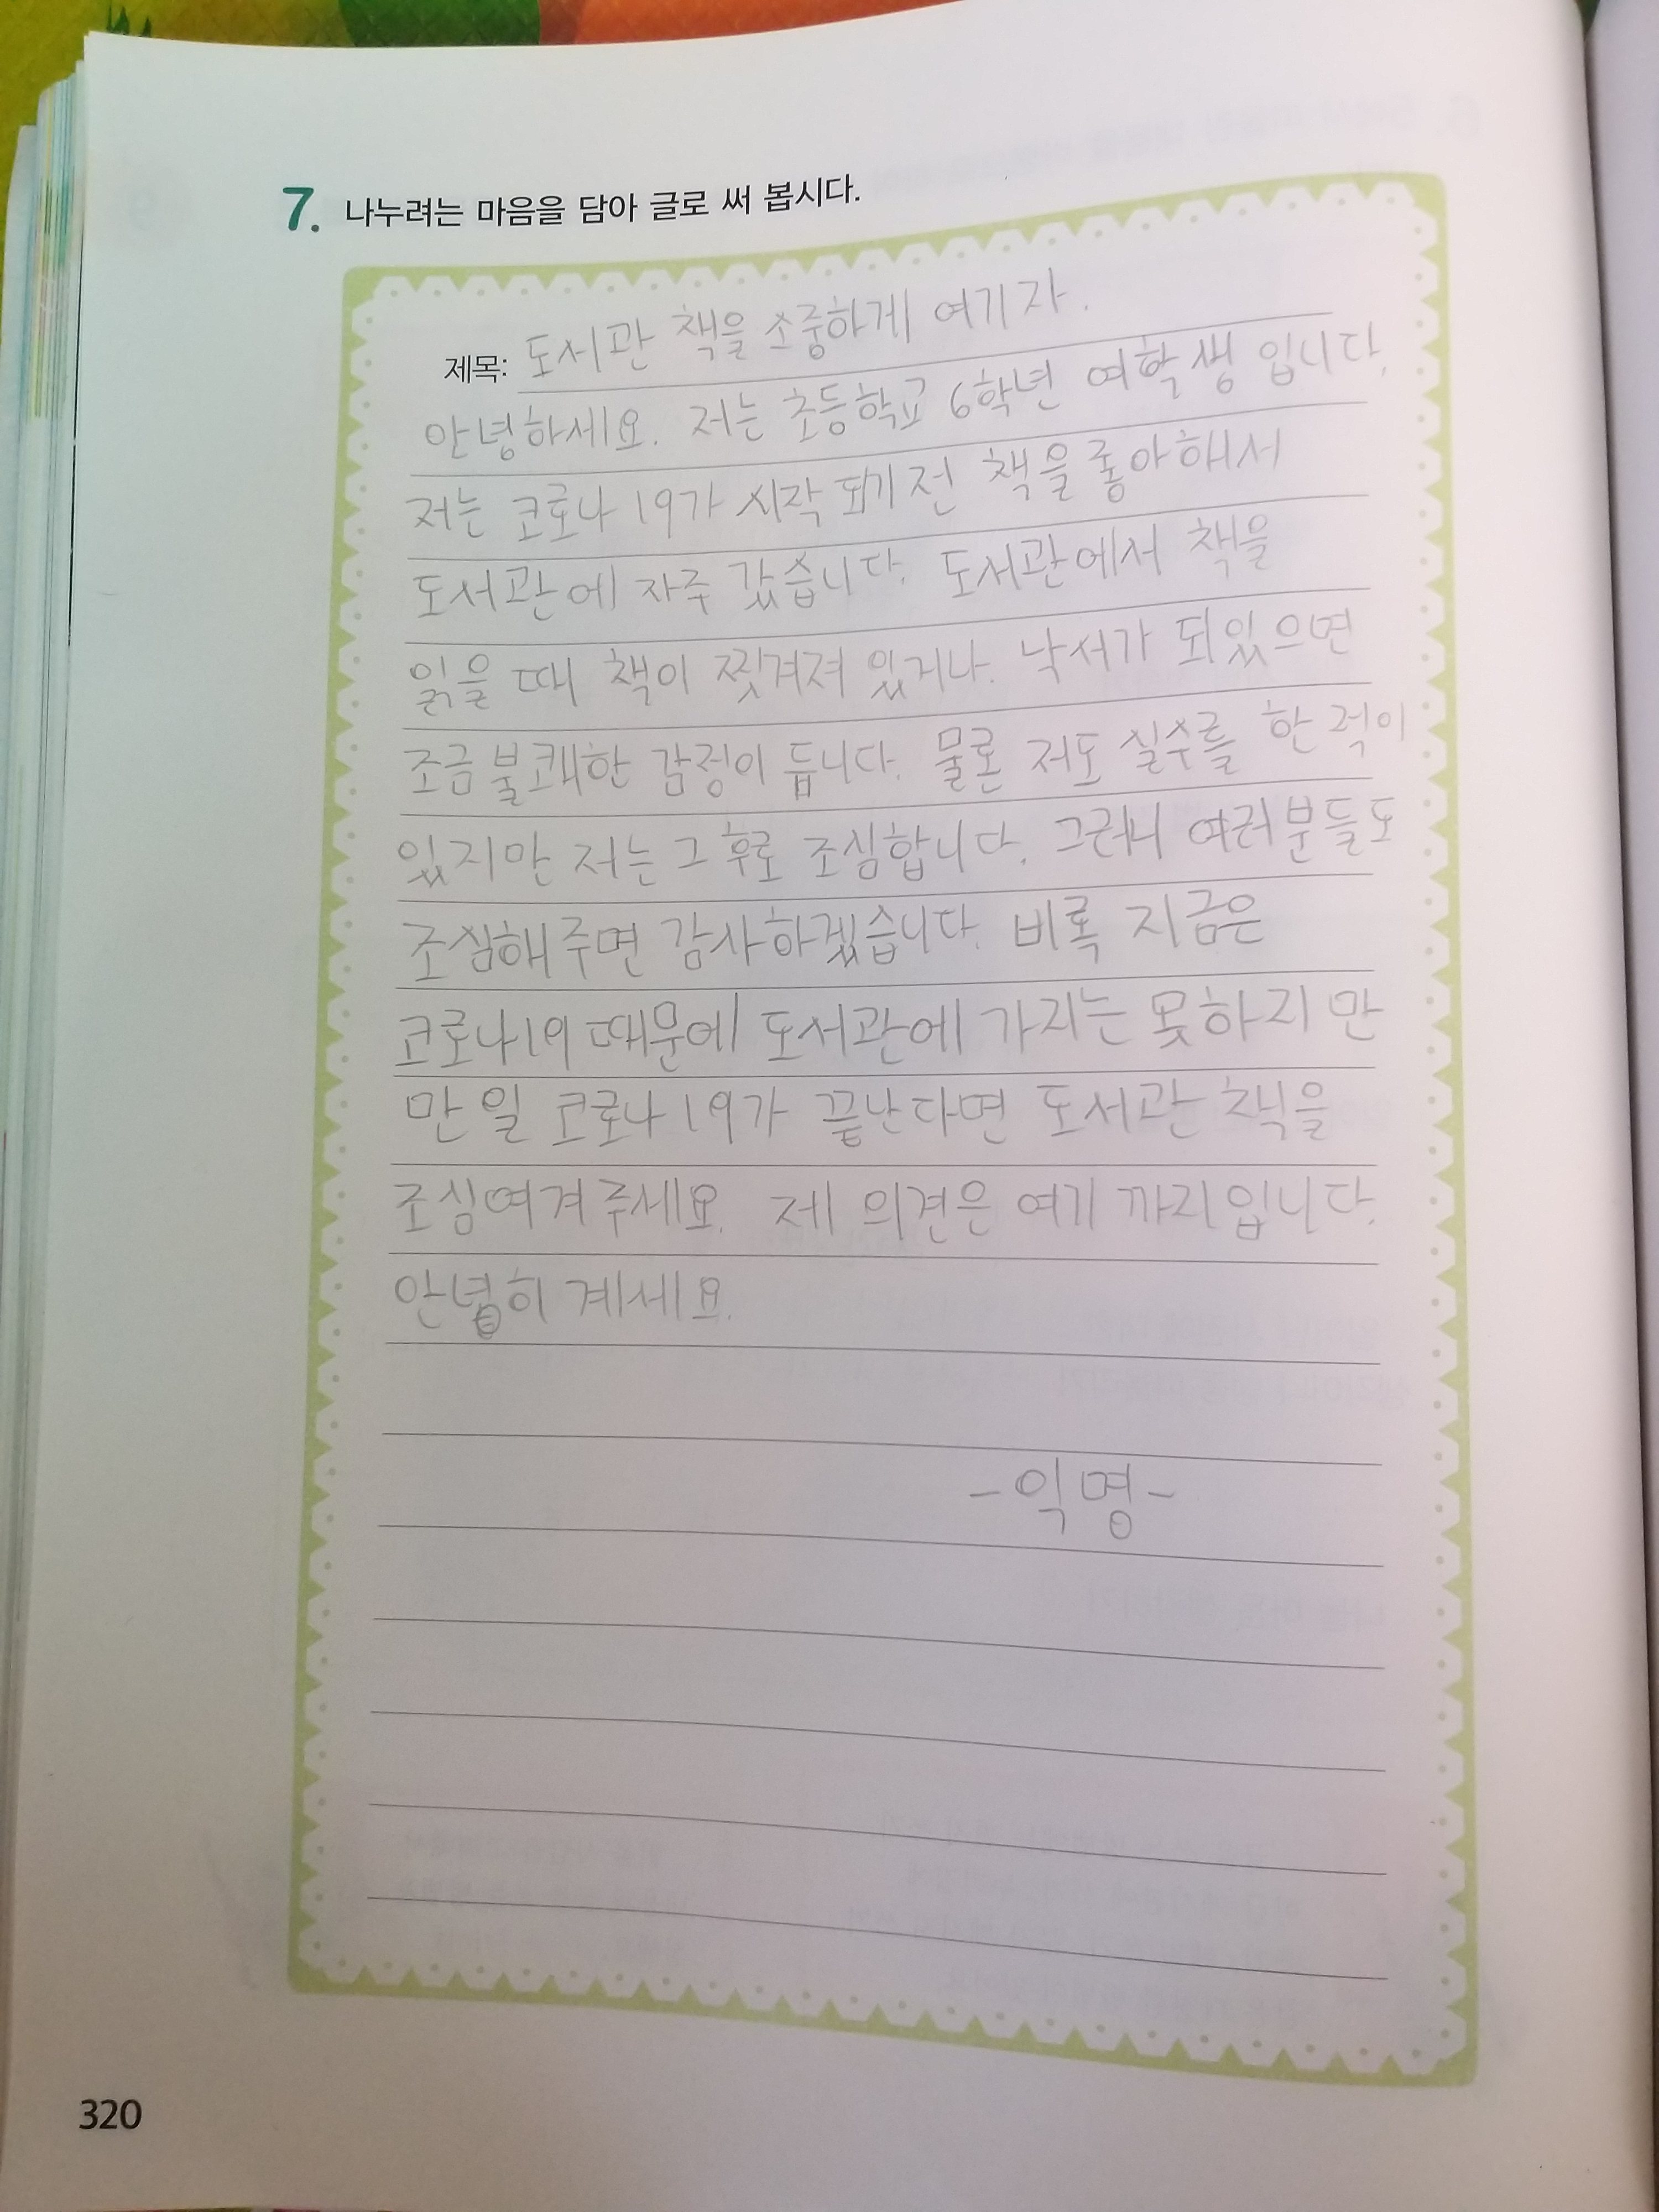 7. 나누려는 마음을 담아 글로 써 봅시다.
제목: 도서관 책을 소중하게 여기자.
안녕하세요. 저는 초등학교 6학년 여학생 입니다.
저는 코로나 19가 시작 되기 전 책을 좋아해서
도서관에 자주 갔습니다. 도서관에서 책을
읽을 때 책이 찢겨져 있거나. 낙서가 되있으면
조금 불쾌한 감정이 듭니다. 물론 저도 실수를 한 적이
있지만 저는 그 후로 조심합니다. 그러니 여러분들도
조심해 주면 감사하겠습니다. 비록 지금은
코로나19 때문에 도서관에 가지는 못하지만
만일 코로나 19가 끝난다면 도서관 책을
조심여겨 주세요. 제 의견은 여기 까지입니다.
안녕히 계세요.
-익명-
320